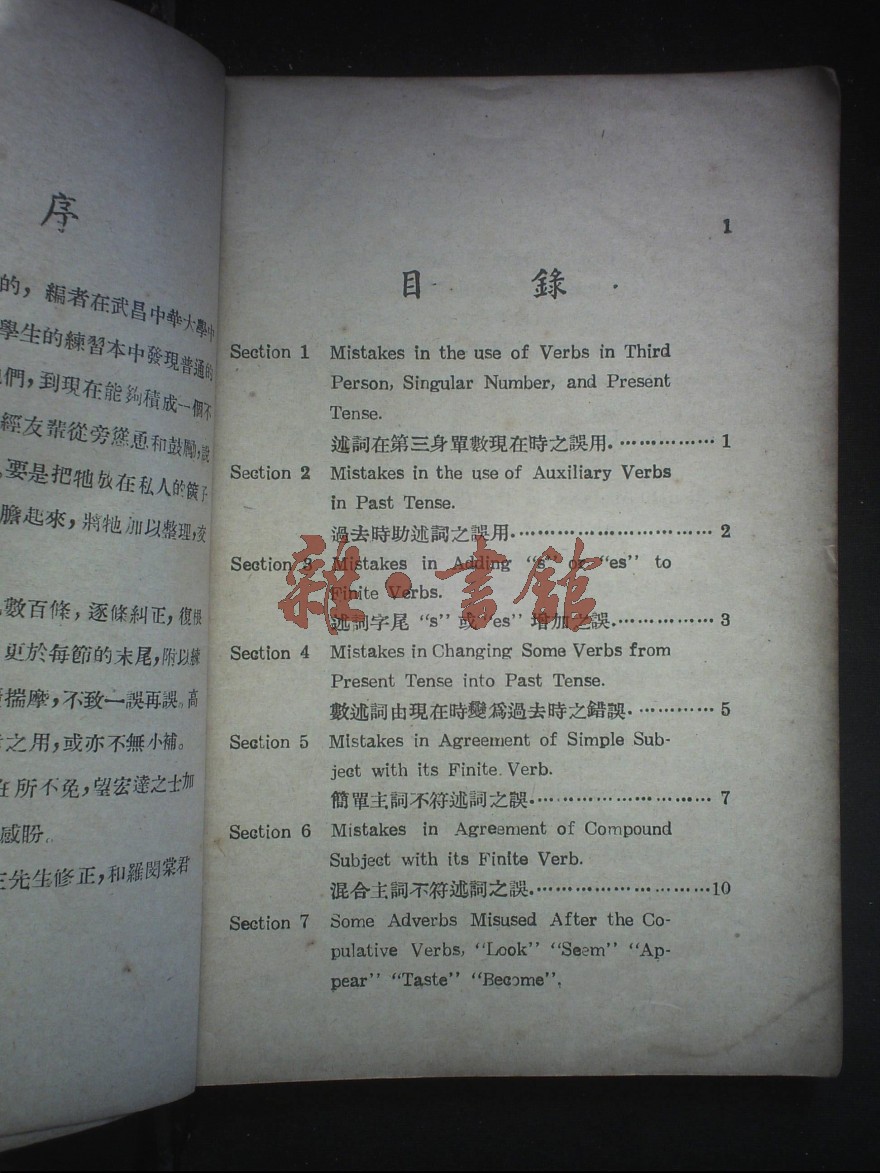 序
的，編者在武昌中華大學中
學生的練習本中發現普通的
們，到現在能夠積成一個不
經友輩從旁慫恿和鼓勵，說
要是把牠放在私人的篋子
膽起來，將牠加以整理，亥
數百條，逐條糾正，復根
更於每節的末尾，附以練
揣摩，不致一誤再誤。高
之用，或亦不無小補。
所不免，望宏達之士加
感盼。
先生修正，和羅閔棠君
1
目 錄
Section 1 Mistakes in the use of Verbs in Third
Person, Singular Number, and Present
Tense.
述詞在第三身單數現在時之誤用. …………… 1
Section 2 Mistakes in the use of Auxiliary Verbs
in Past Tense.
過去時助述詞之誤用. …………………… 2
Section 3 Mistakes in Adding “s” or “es” to
Finite Verbs.
述詞字尾 “s” 或 “es” 增加之誤. …………… 3
Section 4 Mistakes in Changing Some Verbs from
Present Tense into Past Tense.
數述詞由現在時變爲過去時之錯誤. ………… 5
Section 5 Mistakes in Agreement of Simple Sub-
ject with its Finite Verb.
簡單主詞不符述詞之誤. ……………………… 7
Section 6 Mistakes in Agreement of Compound
Subject with its Finite Verb.
混合主詞不符述詞之誤. ………………………10
Section 7 Some Adverbs Misused After the Co-
pulative Verbs, “Look” “Seem” “Ap-
pear” “Taste” “Become”,
雜·書館